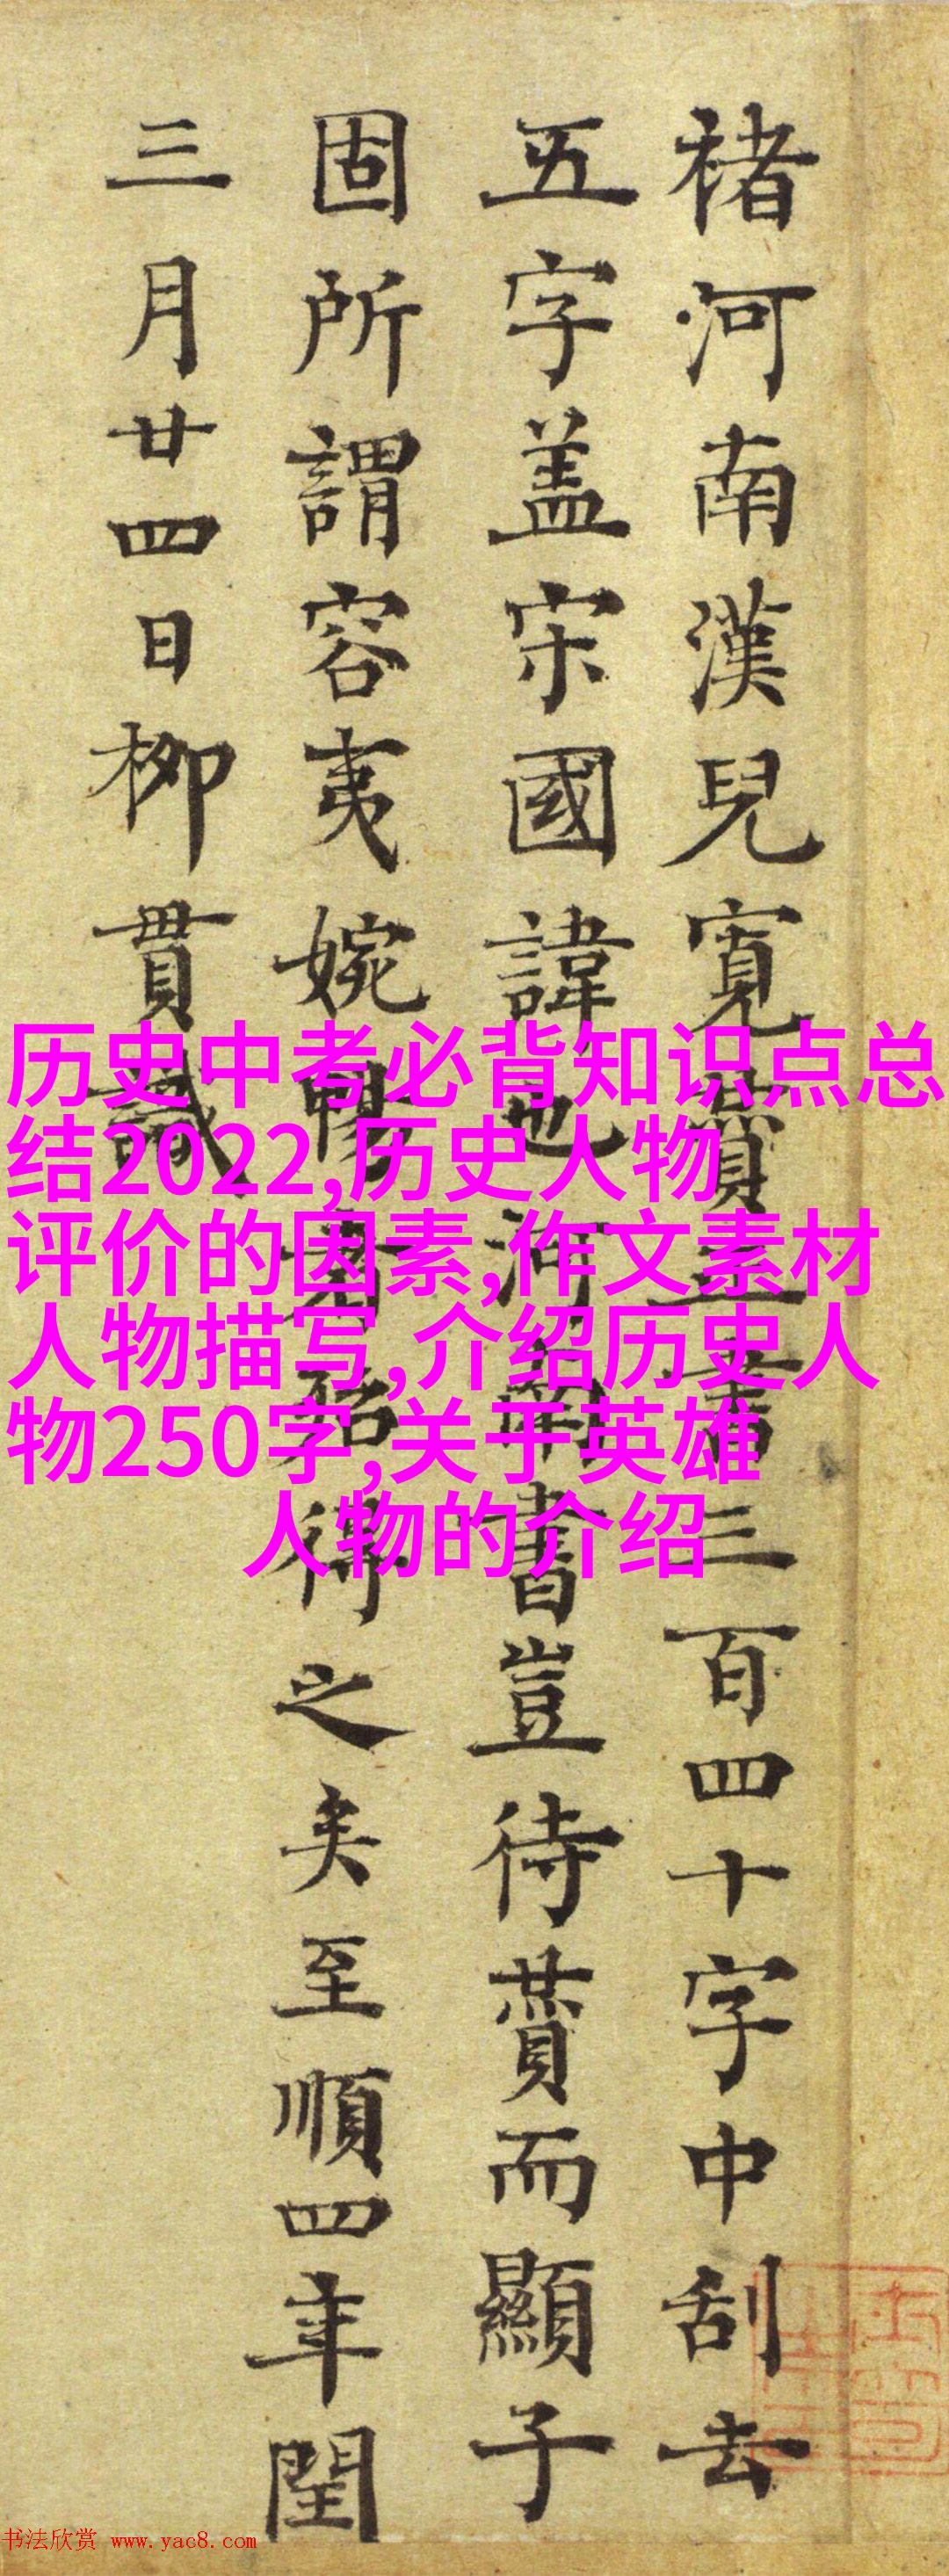 褚河南漢兒寬賛正書三百四十字中刮去
五字盖宋國諱也河南書豈待賛而顯子
固所謂容夷婉暢者殆得之矣至順四年閏
三月廿四日柳貫識
历史中考必背知识点总
结2022,历史人物
评价的因素,作文素材
人物描写,介绍历史人
物250字,关于英雄
人物的介绍
书法欣赏 www.yac8.com